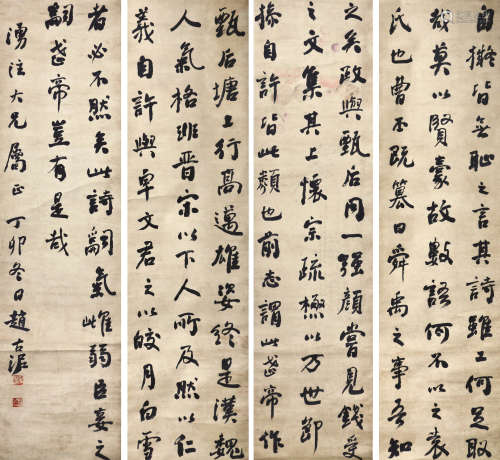 自擬皆無恥之言其詩雖工何足取
哉莫以賢豪故數語何不以之袁
氏也曹丕既篡曰舜禹之事吾知
之矣政與甄后同一強顏嘗見錢受
之文集其上懷宗疏極以万世節
操自許皆此類也前志謂此武帝作
甄后塘上行高邁雄姿終是漢魏
人氣格非晋宗以下人所及然以仁
義自許與卓文君之以皎月白雪
者必不然矣此詩詞氣雌弱臣妾之
詞武帝豈有是哉
湧注大兄屬正 丁卯冬日趙古泥